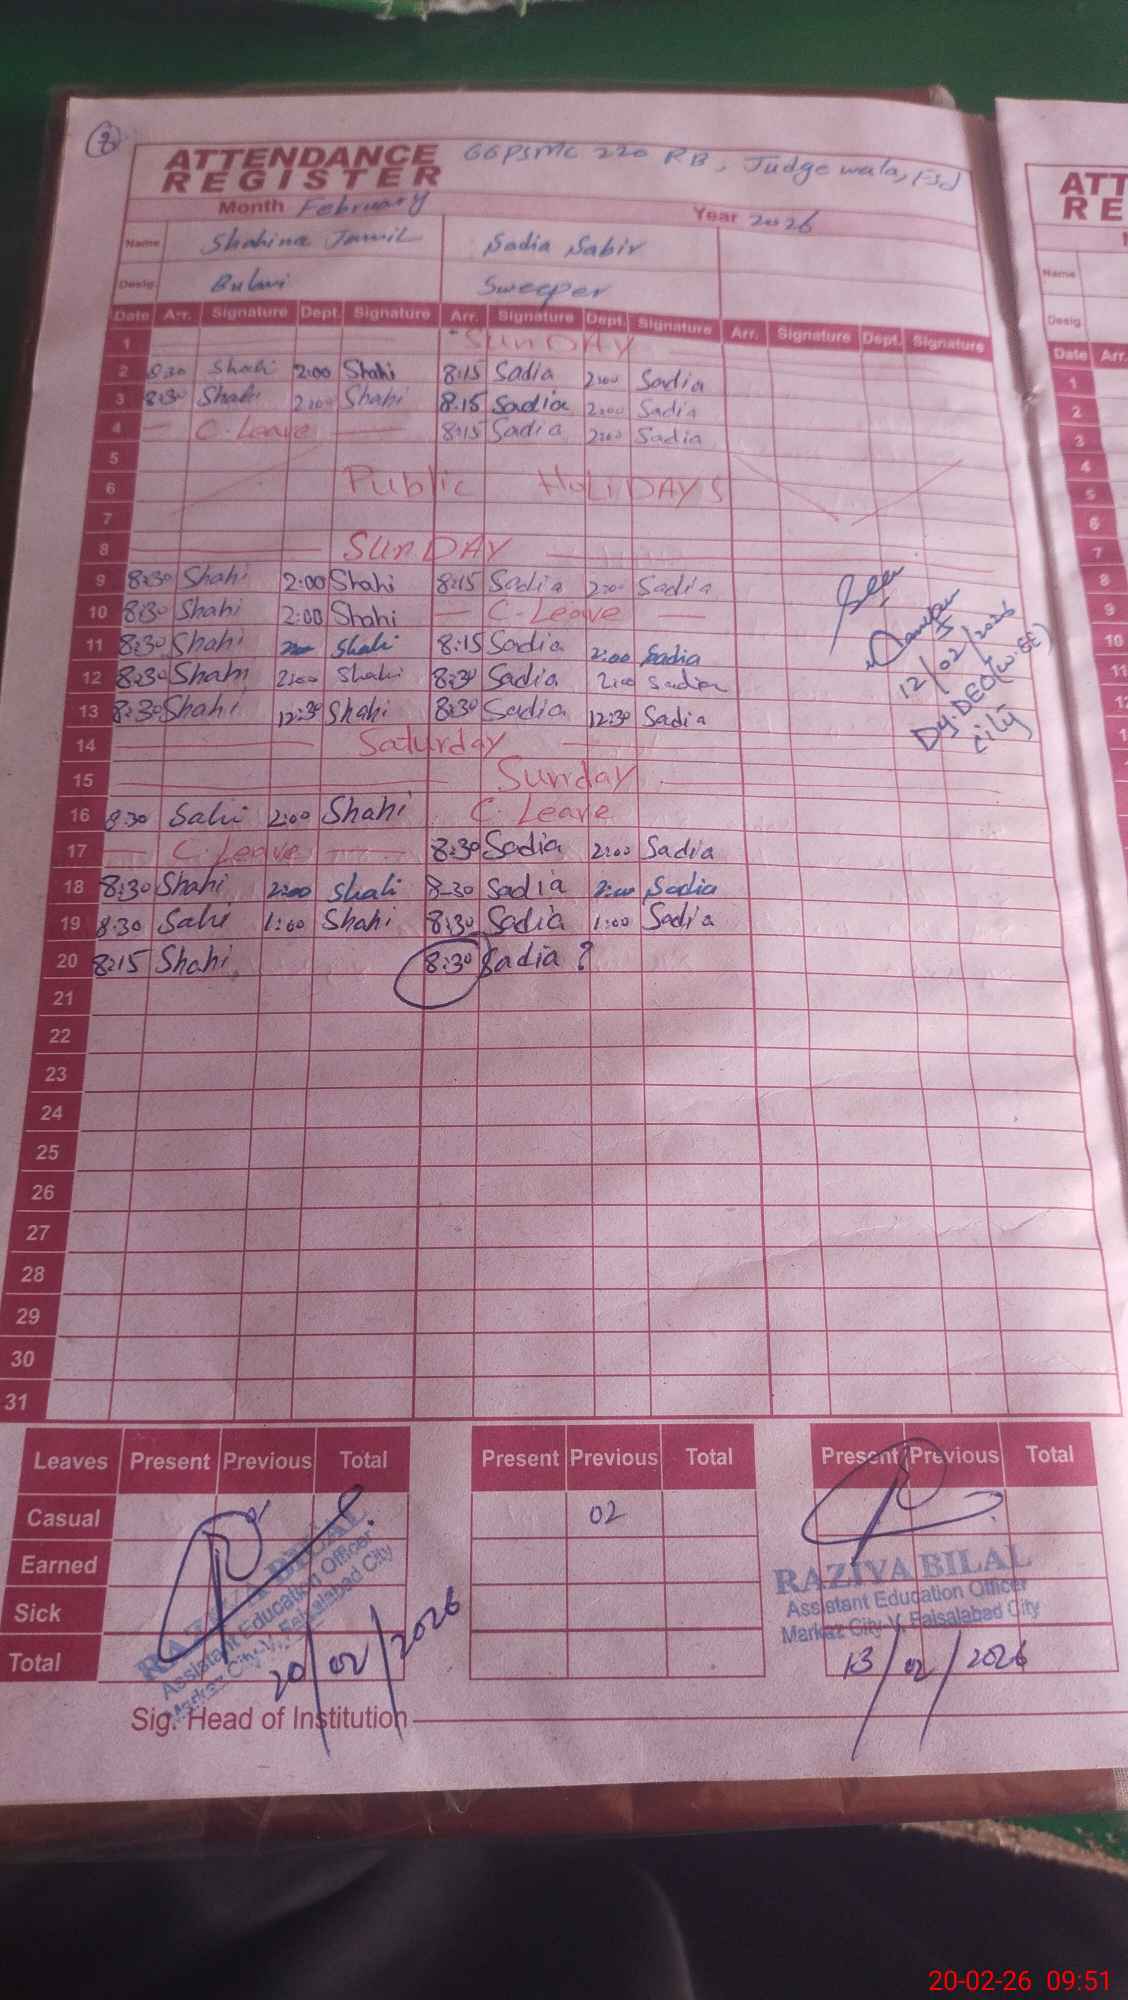 8
ATTENDANCE REGISTER GGPSMC 220 RB, Judge wala, Fsd
Month February Year 2026
Name Shahina Jamil Sadia Sabir
Desig. Sweeper
Date Arr. Signature Dept. Signature Arr. Signature Dept. Signature Arr. Signature Dept. Signature
1 SUNDAY
2 8:30 Shahi 2:00 Shahi 8:15 Sadia 2:00 Sadia
3 8:30 Shahi 2:00 Shahi 8.15 Sadia 2:00 Sadia
4 — C.Leave — 8:15 Sadia 2:00 Sadia
5
6 Public HoLiDAYS
7
8 SUNDAY
9 8:30 Shahi 2:00 Shahi 8:15 Sadia 2:00 Sadia
10 8:30 Shahi 2:00 Shahi — C.Leave —
11 8:30 Shahi Shahi 8:15 Sadia 2:00 Sadia
12 8:30 Shahi 2:00 Shahi 8:30 Sadia 2:00 Sadia
13 8:30 Shahi 12:30 Shahi 8:30 Sadia 12:30 Sadia
14 Saturday
15 Sunday
16 8:30 Sahi 2:00 Shahi C.Leave
17 — C.Leave — 8:30 Sadia 2:00 Sadia
18 8:30 Shahi 2:00 Shahi 8-30 Sadia 2:00 Sadia
19 8:30 Sahi 1:00 Shahi 8:30 Sadia 1:00 Sadia
20 8:15 Shahi 8:30 Sadia ?
21
22
23
24
25
26
27
28
29
30
31
Seen
12/02/2026
Dy.DEO(W.EE)
city
Leaves Present Previous Total Present Previous Total Present Previous Total
Casual 02
Earned
Sick
Total
RAZIYA BILAL
Assistant Education Officer
Markaz City-V, Faisalabad City
20/02/2026
RAZIYA BILAL
Assistant Education Officer
Markaz City-V, Faisalabad City
13/02/2026
Sig. Head of Institution
ATT
RE
Name
Desig
Date Arr.
1
2
3
4
5
6
7
8
9
10
11
20-02-26 09:51